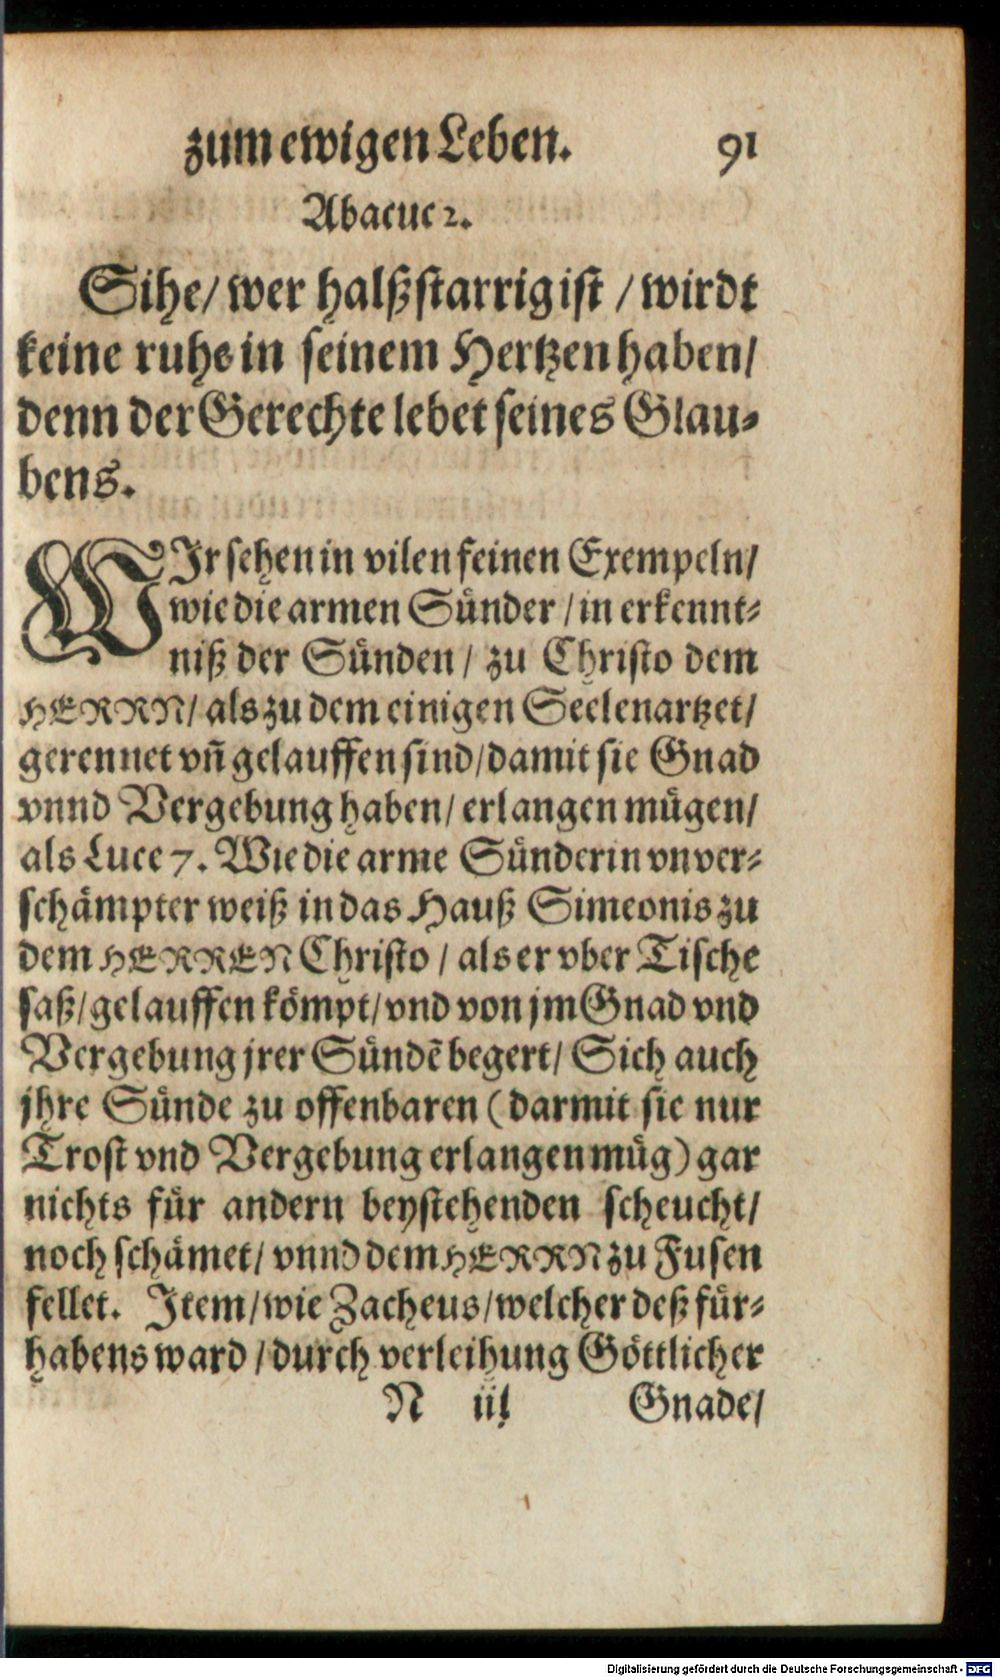 zum ewigen Leben. 91
Abacuc 2.
Sihe/ wer halßstarrig ist / wirdt
keine ruhe in seinem Hertzen haben/
denn der Gerechte lebet seines Glau-
bens.
WIr sehen in vilen feinen Exempeln/
wie die armen Sünder / in erkennt-
niß der Sünden / zu Christo dem
HERRN/ als zu dem einigen Seelenartzet/
gerennet vñ gelauffen sind/damit sie Gnad
vnnd Vergebung haben/ erlangen mügen/
als Luce 7. Wie die arme Sünderin vnver-
schämpter weiß in das Hauß Simeonis zu
dem HERREN Christo / als er vber Tische
saß/gelauffen kömpt/vnd von jm Gnad vnd
Vergebung jrer Sündẽ begert/ Sich auch
jhre Sünde zu offenbaren (darmit sie nur
Trost vnd Vergebung erlangen müg) gar
nichts für andern beystehenden scheucht/
noch schämet/ vnnd dem HERRN zu Fusen
fellet. Item/wie Zacheus/welcher deß für-
habens ward / durch verleihung Göttlicher
N iij Gnade/
Digitalisierung gefördert durch die Deutsche Forschungsgemeinschaft - DFG